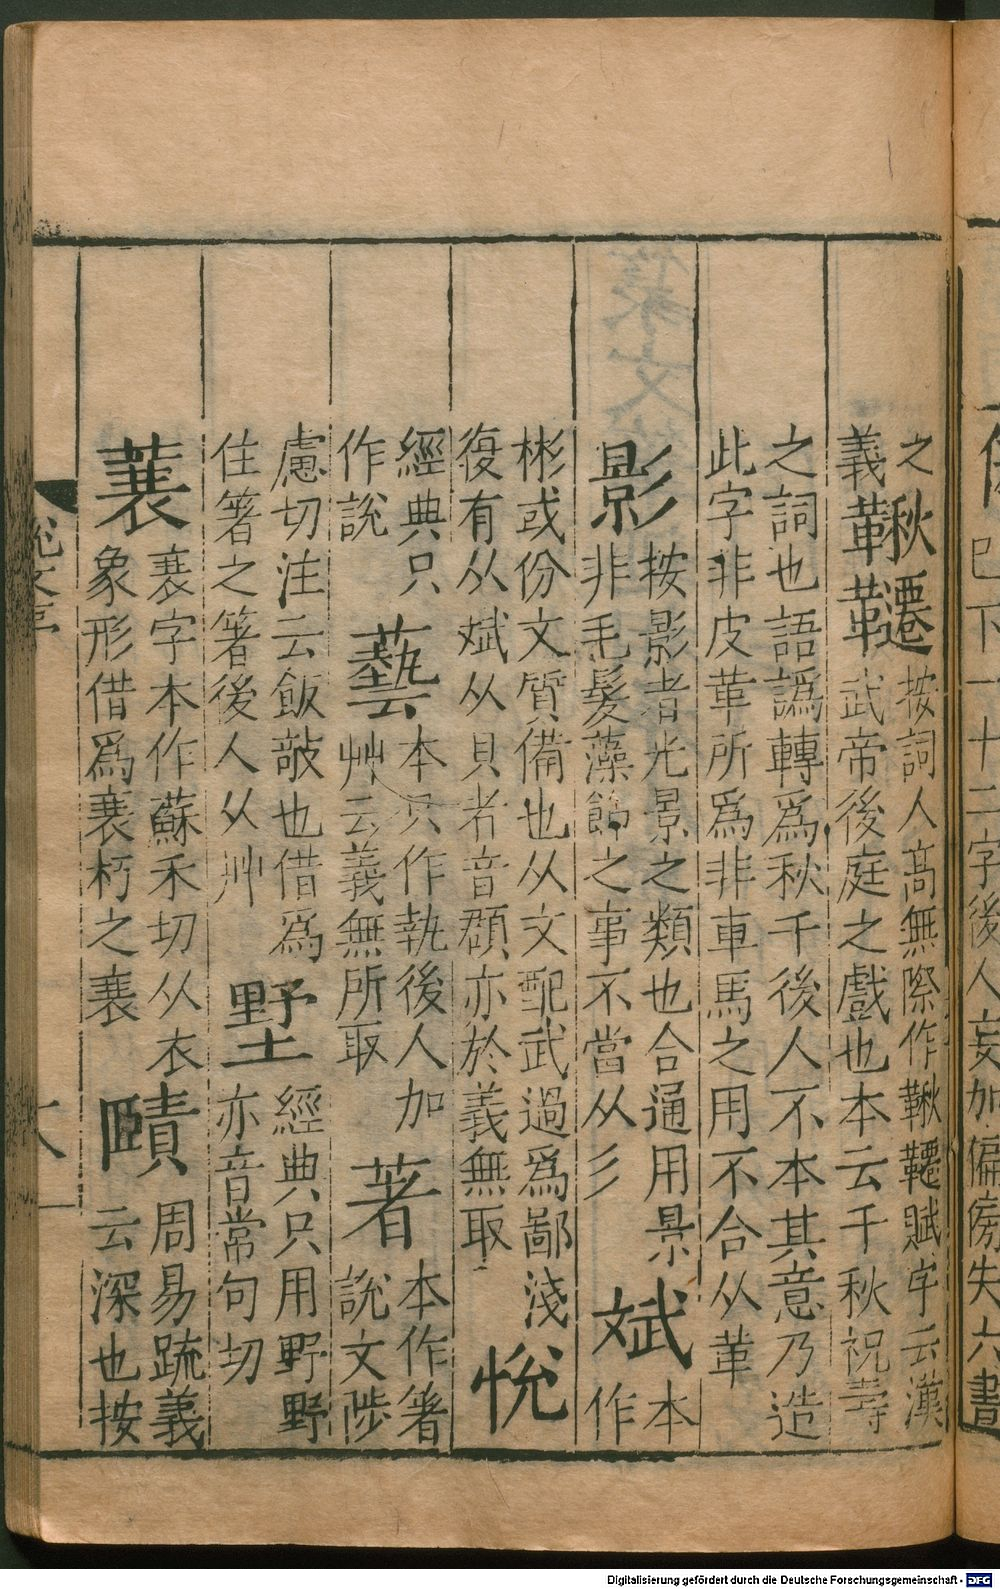 巳下一十二字後人妄加偏傍失六書
之
義
鞦韆
按詞人高無際作鞦韆賦序云漢
武帝後庭之戲也本云千秋祝壽
之詞也語譌轉爲秋千後人不本其意乃造
此字非皮革所爲非車馬之用不合从革
影
按影者光景之類也合通用景
非毛髮藻飾之事不當从彡
斌
本
作
彬或份文質備也从文配武過爲鄙淺
復有从斌从貝者音頵亦於義無取
悅
經典只
作說
藝
本只作執後人加
艸云義無所取
著
本作箸
說文陟
慮切注云飯敧也借爲
住箸之箸後人从艸
墅
經典只用野野
亦音常句切
蓑
衰字本作蘇禾切从衣
象形借爲衰朽之衰
賾
周易疏義
云深也按
Digitalisierung gefördert durch die Deutsche Forschungsgemeinschaft - DFG